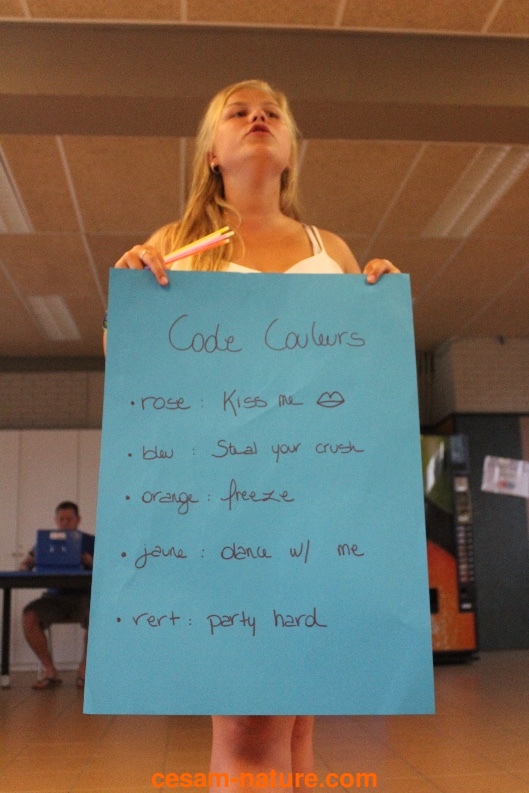 Code Couleurs
• rose : Kiss me
• bleu : Steal your crush
• orange : freeze
• jaune : dance w/ me
• vert : party hard
cesam-nature.com